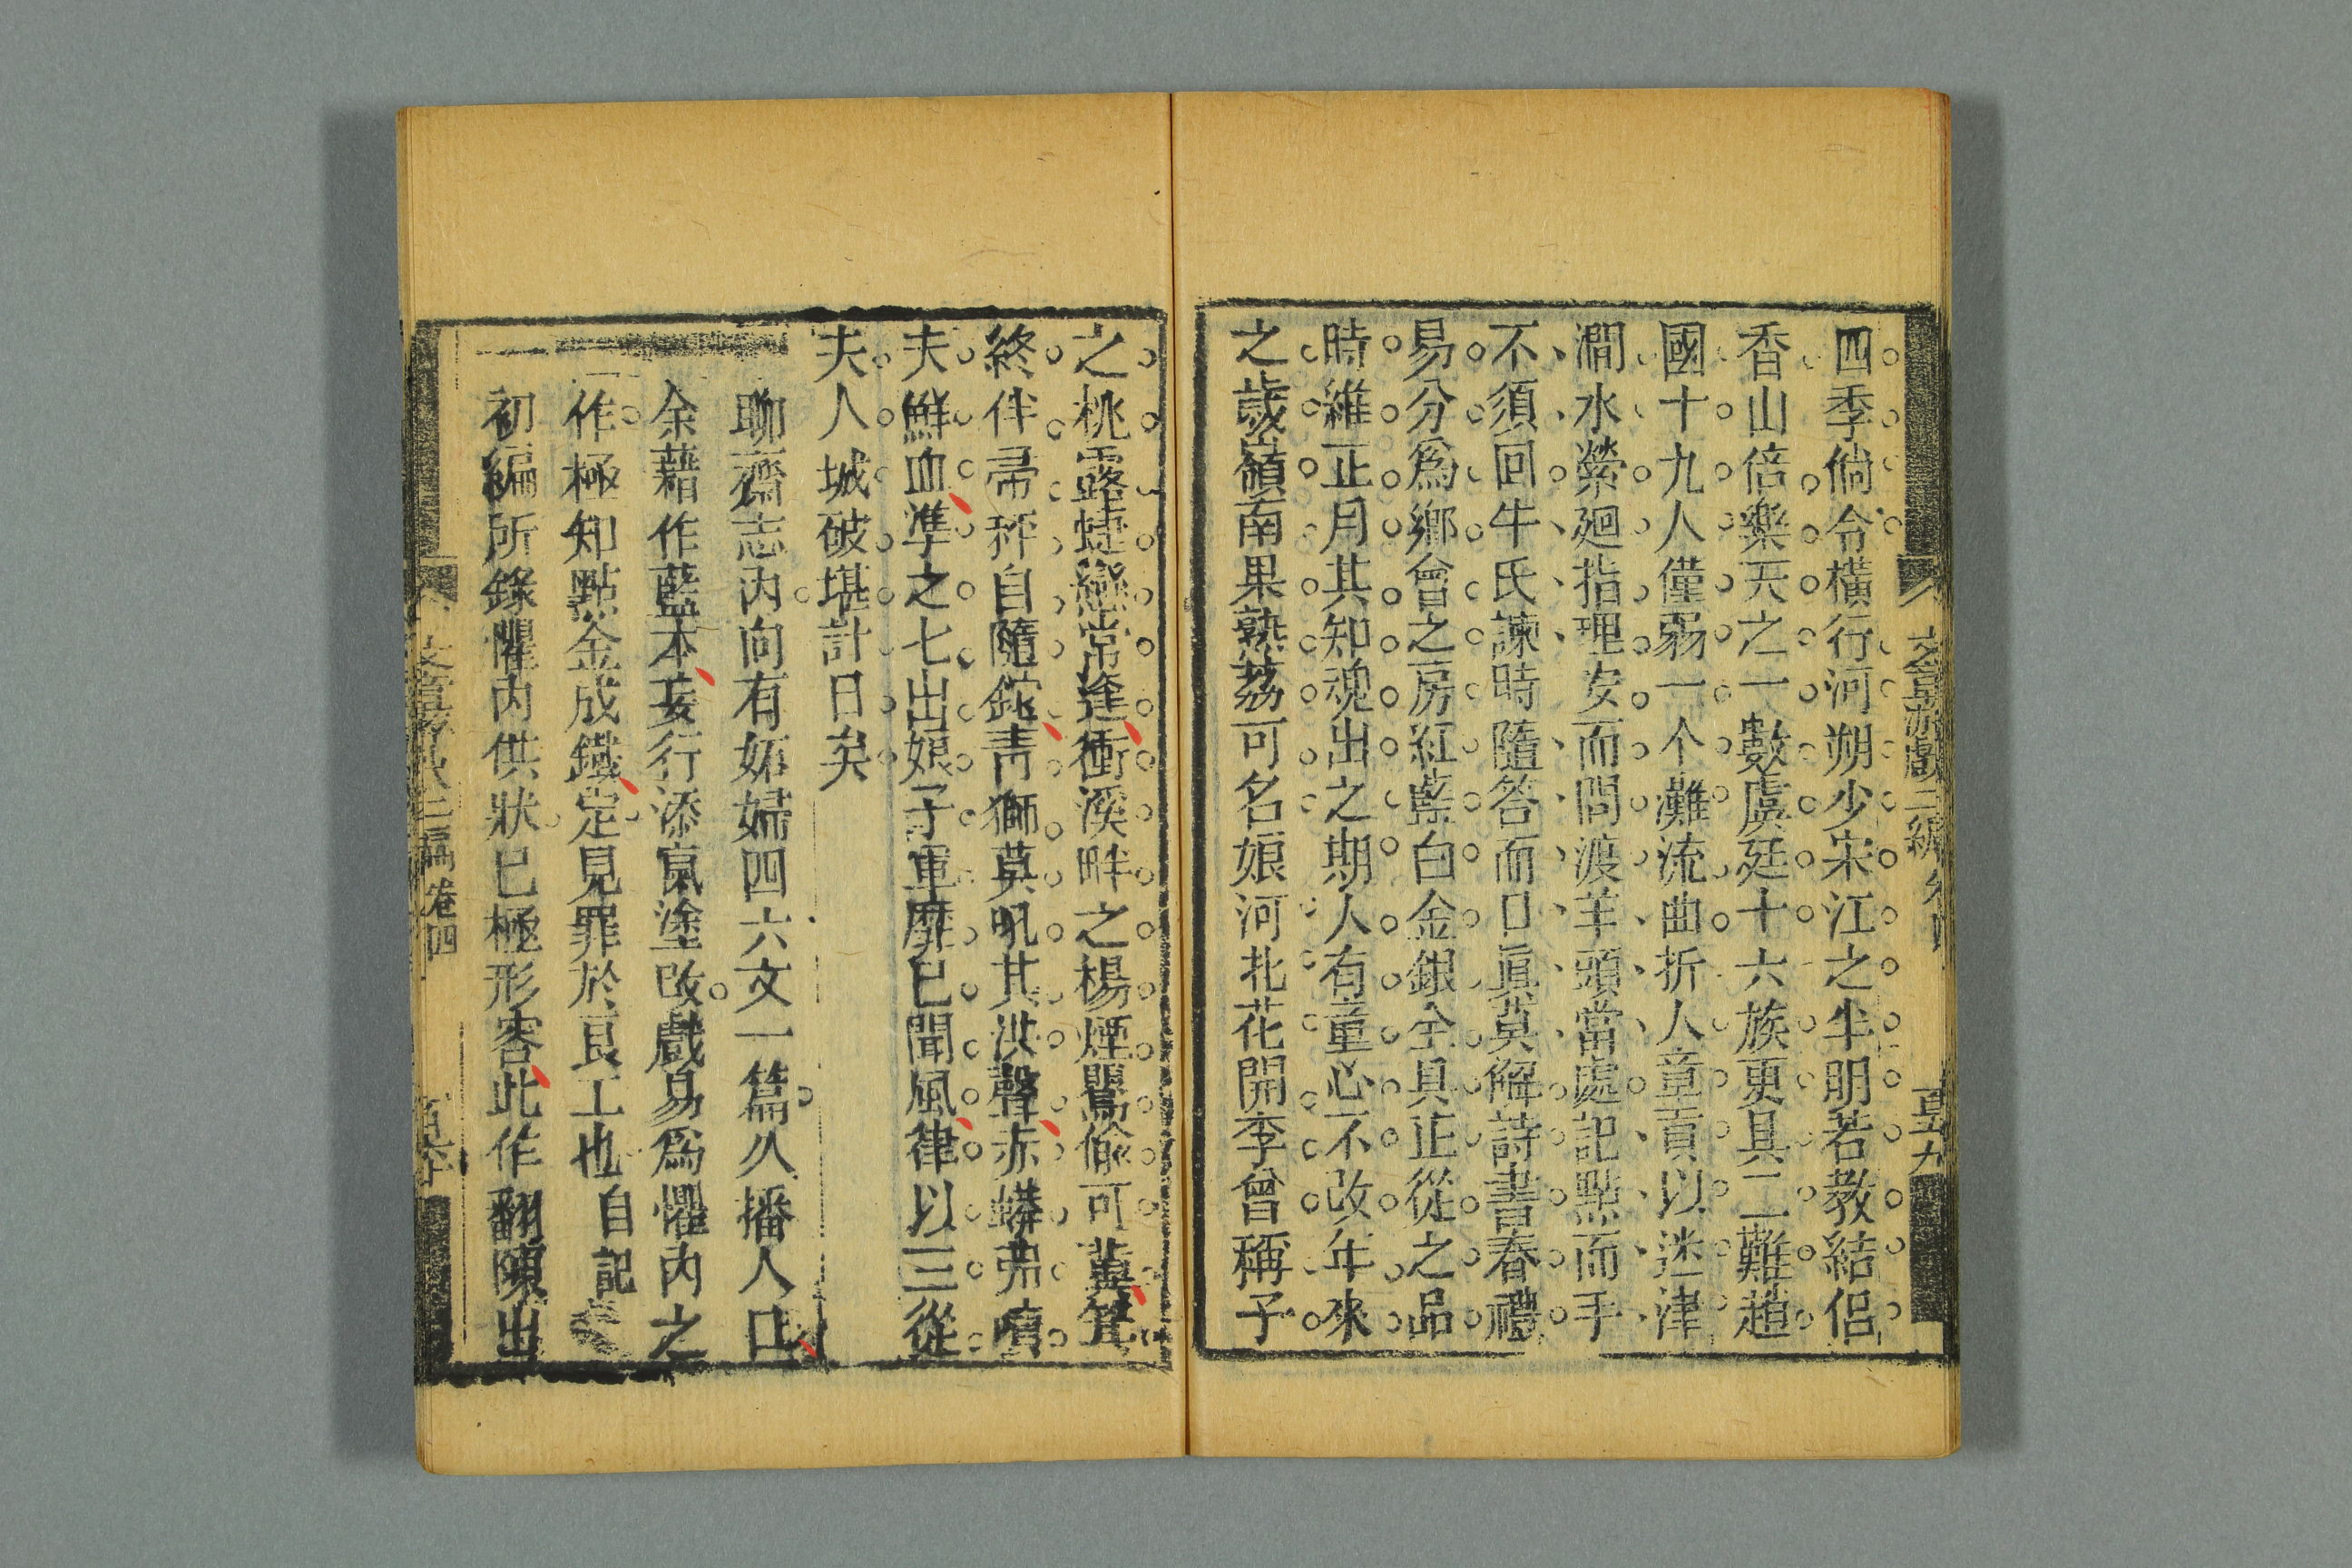 四季倘令橫行河朔少宋江之半明若教結侶
香山倍樂天之一數虞廷十六族更具二難趙
國十九人僅弱一个灘流曲折人章貢以迷津
澗水縈廻指理安而問渡羊頭當處記點而手
不須回牛氏諫時隨答而口眞莫解詩書春禮
易分爲鄉會之房紅藍白金銀全具正從之品
時維正月其知魂出之期人有童心不改年來
之歲嶺南果熟荔可名娘河北花開李曾稱子
文章游戲二編 卷四 百五九
之桃露蜨戀常逢衝溪畔之楊煙鶯偷可冀箕
終伴帚秤自隨鉈青獅莫吼其洪聲赤蟒弗噴
夫鮮血準之七出娘子軍靡已聞風律以三從
夫人城破堪計日矣
聊齋志內向有妬婦四六文一篇久播人口
余藉作藍本妄行添竄塗改戲易爲懼內之
作極知點金成鐵定見罪於良工也 自記
初編所錄懼內供狀已極形容此作翻陳出
文章游戲二編 卷四 百六十